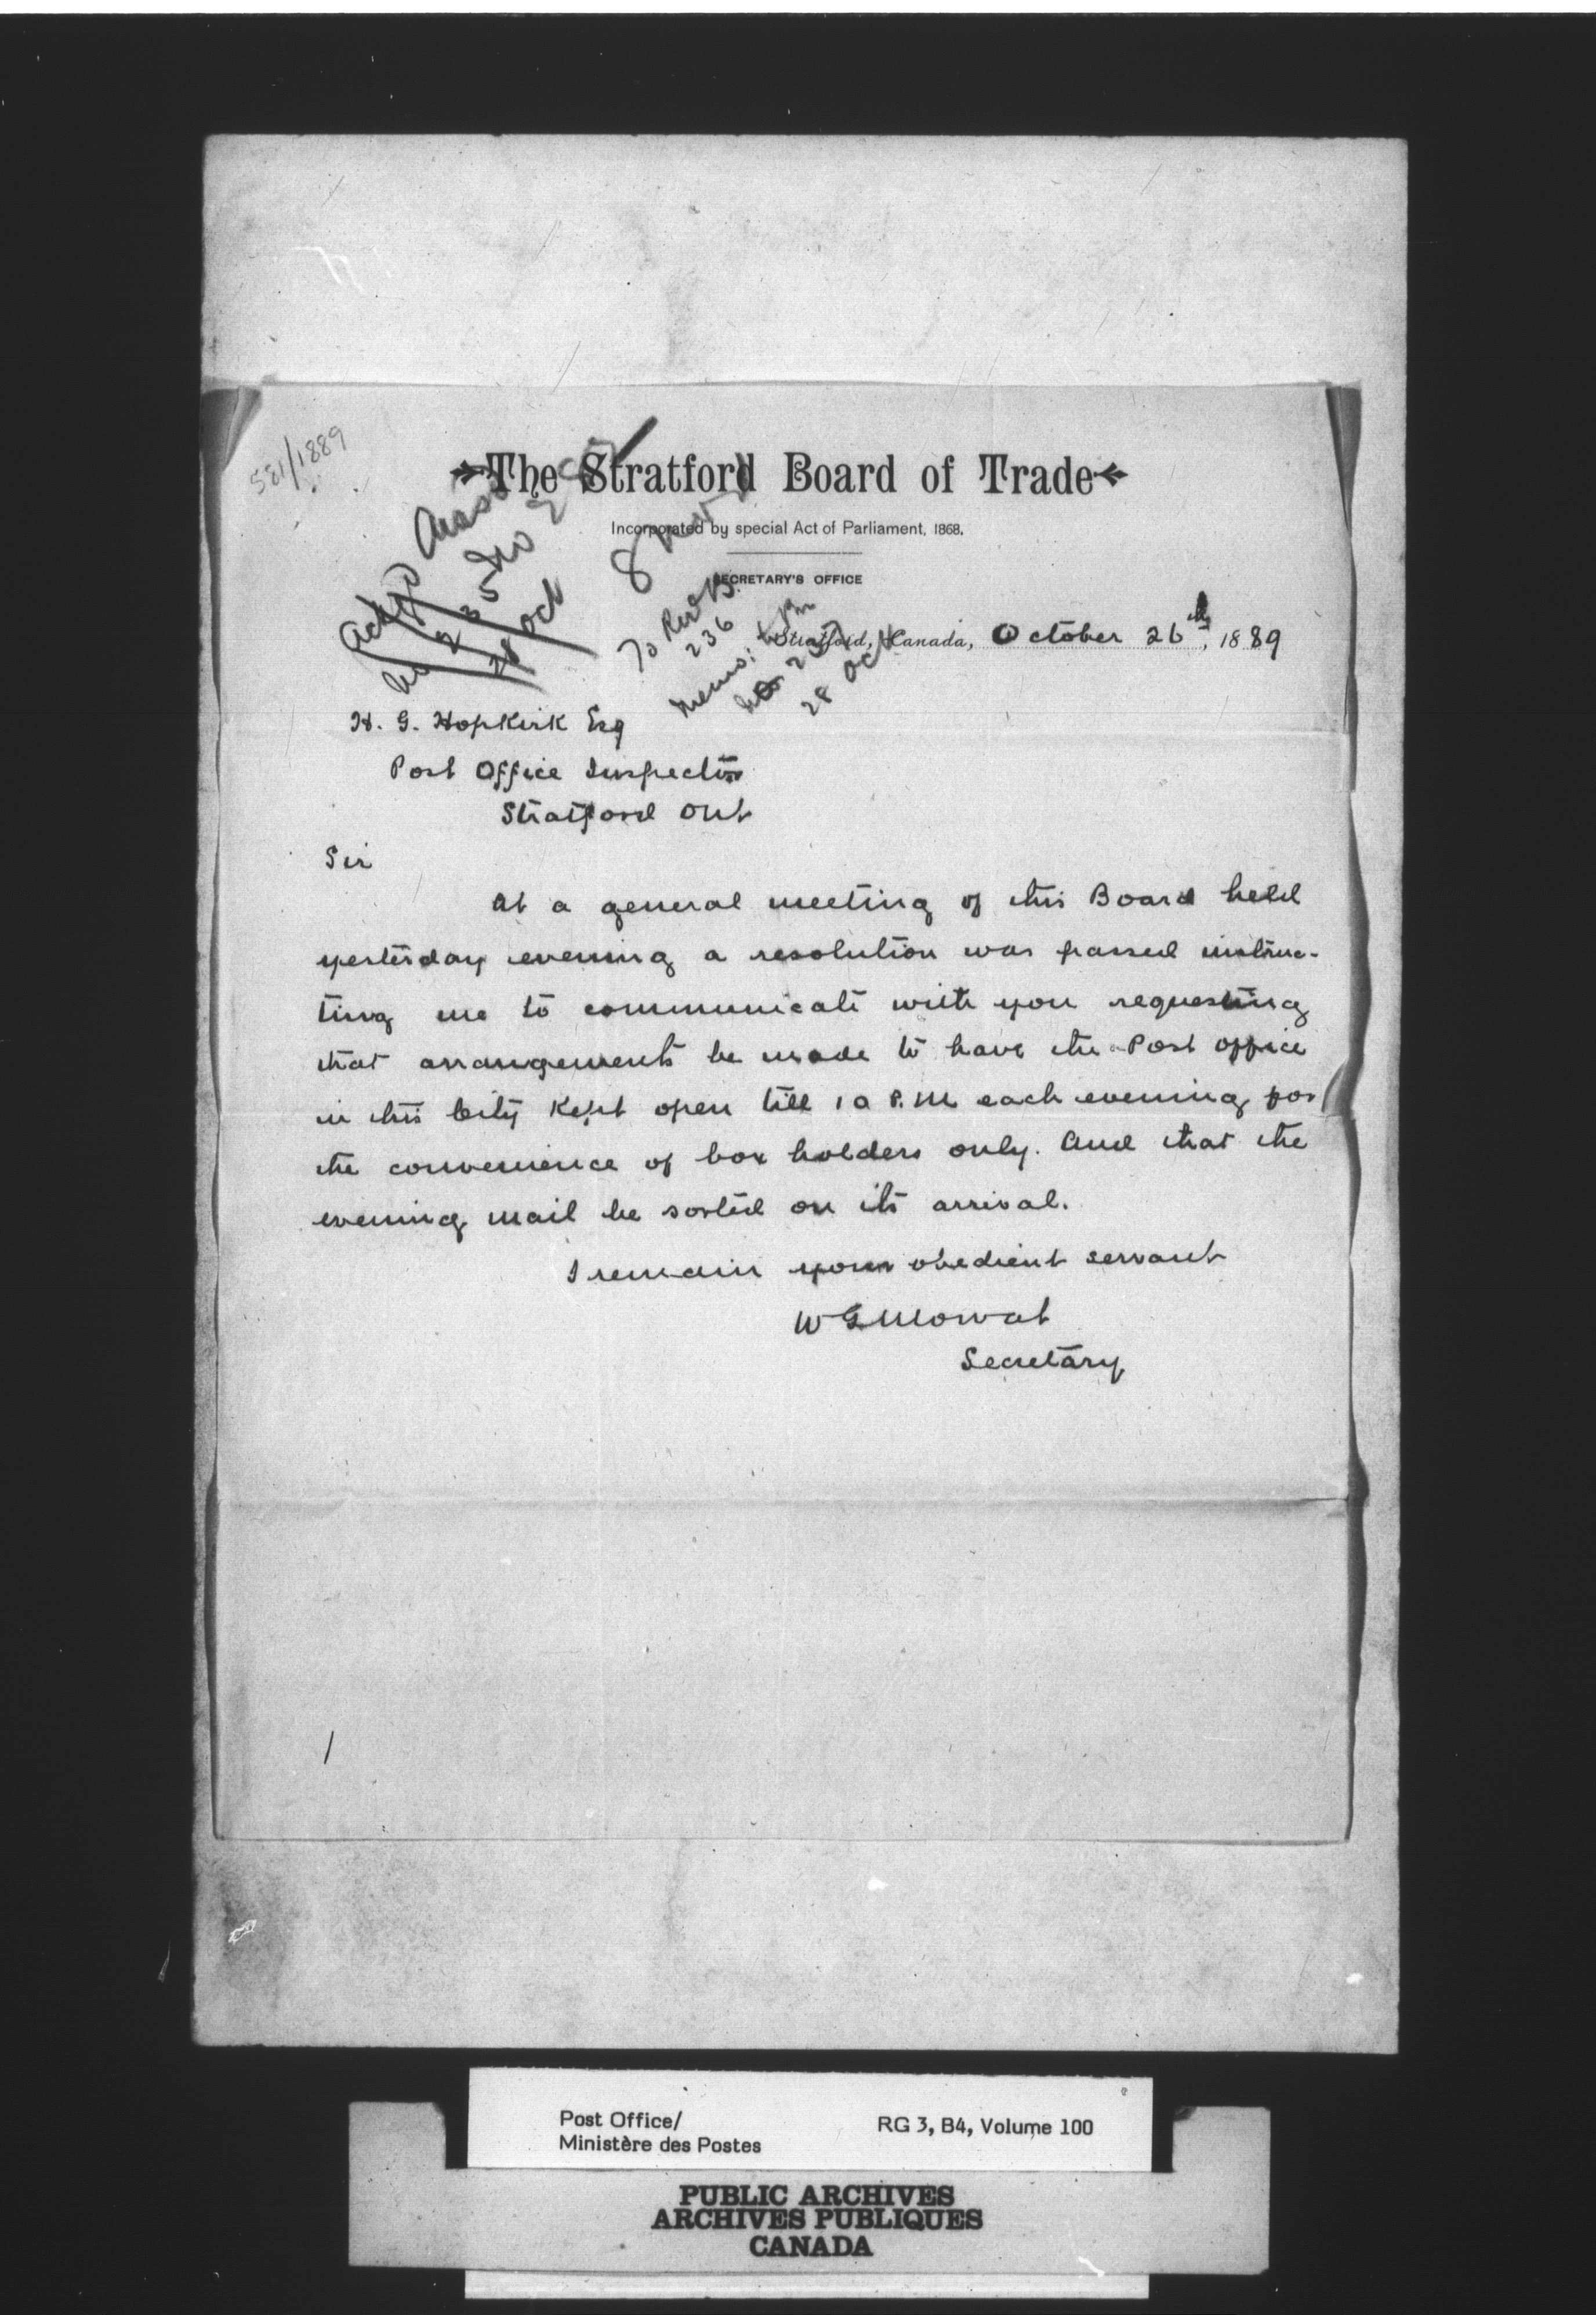 581/1889
The Stratford Board of Trade
Incorporated by special Act of Parliament, 1868.
SECRETARY'S OFFICE
Stratford, Canada, October 26th, 1889
Ackgd
235
28 Oct
236
Memo:
28 Oct
H. G. Hopkirk Esq
Post Office Inspector
Stratford Ont
Sir
At a general meeting of this Board held
yesterday evening a resolution was passed instruc-
ting me to communicate with you requesting
that arrangements be made to have the Post office
in this City Kept open till 10 P.M each evening for
the convenience of box holders only. And that the
evening mail be sorted on its arrival.
I remain your obedient servant
W G Mowat
Secretary
Post Office/
Ministère des Postes
RG 3, B4, Volume 100
PUBLIC ARCHIVES
ARCHIVES PUBLIQUES
CANADA